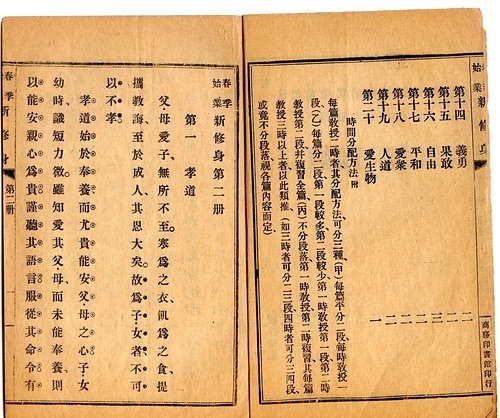 春季始業新修身
第十四　義勇　二
第十五　果敢　三
第十六　自由　二
第十七　平和　二
第十八　愛衆　二
第十九　人道　一
第二十　愛生物　一
時間分配方法附
每篇敎授二時者其分配方法可分三種(甲)每篇平分二段每時敎授一
段(乙)每篇分二段第一段較多第二段較少第一時敎授第一段第二時
敎授第二段幷複習全篇(丙)不分段落第一時敎授第二時複習其每篇
敎授三時以上者以此類推(如三時者可分二三段四時者可分三四段
或竟不分段落視各篇內容而定)
商務印書館印行
春季始業新修身第二册
第一　孝道
父母愛子無所不至寒爲之衣飢爲之食提
攜敎海至於成人其恩大矣故爲子女者不可
以不孝
孝道始於奉養而尤貴能安父母之心子女
幼時識短力微雖知愛其父母而未能奉養則
以能安親心爲貴謹聽其語言服從其命令有
春季新修身　第二册